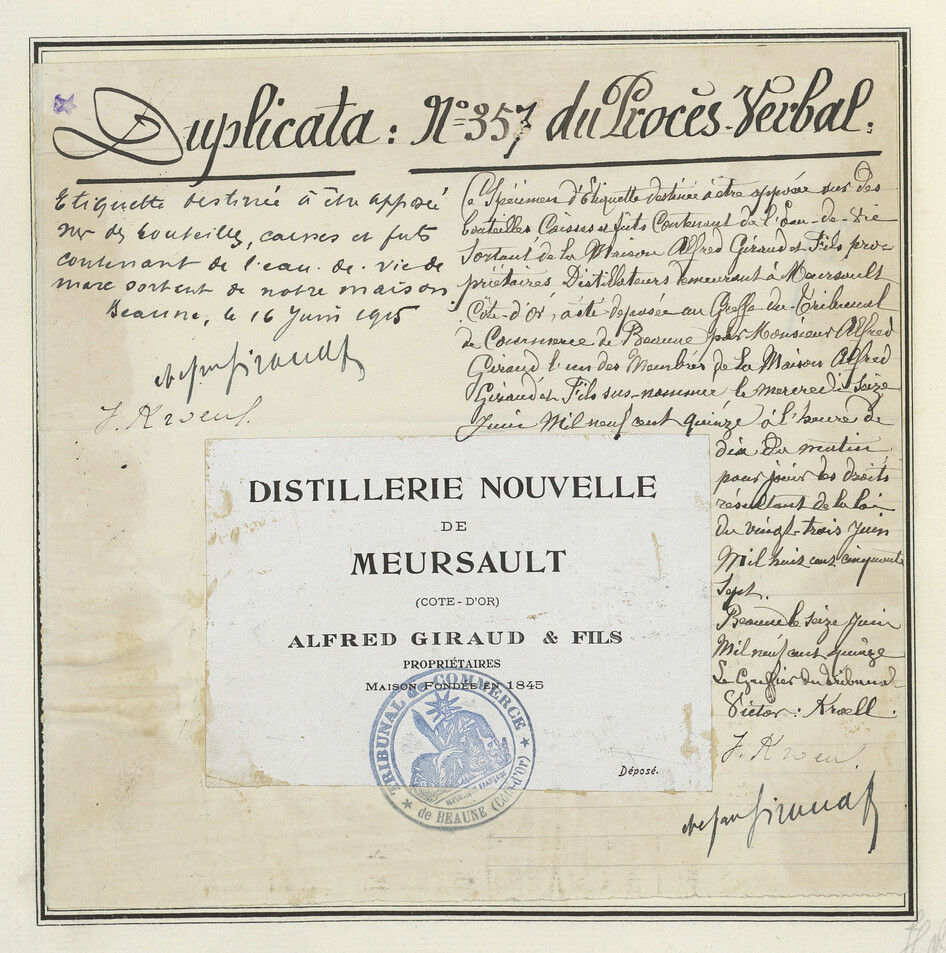 Duplicata : Nº 357 du Procès-Verbal :
Etiquette destinée à être apposée
sur des bouteilles, caisses et futs
contenant de l'eau-de-vie de
marc sortent de notre maison
Beaune, le 16 Juin 1915
Ce Spécimen d'Etiquette destinée à être apposée sur des
bouteilles Caisses et futs Contenant de l'Eau-de-Vie
Sortant de la Maison Alfred Giraud et Fils pro-
priétaires Distillateurs demeurant à Meursault
Côte-d'Or, a été déposée au Greffe du Tribunal
de Commerce de Beaune par Monsieur Alfred
Giraud l'un des Membres de la Maison Alfred
Giraud et Fils sus-nommée le mercredi seize
Juin Mil neuf cent quinze à l'heure de
dix du matin
pour jouir des droits
résultant de la loi
du vingt-trois juin
Mil huit cent cinquante
Sept.
Beaune le seize Juin
Mil neuf cent quinze
Le Greffier du Tribunal
Victor : Kroell.
DISTILLERIE NOUVELLE
DE
MEURSAULT
(COTE-D'OR)
ALFRED GIRAUD & FILS
PROPRIÉTAIRES
MAISON FONDÉE EN 1845
Déposé.
TRIBUNAL de COMMERCE
de BEAUNE (Côte-d'Or)